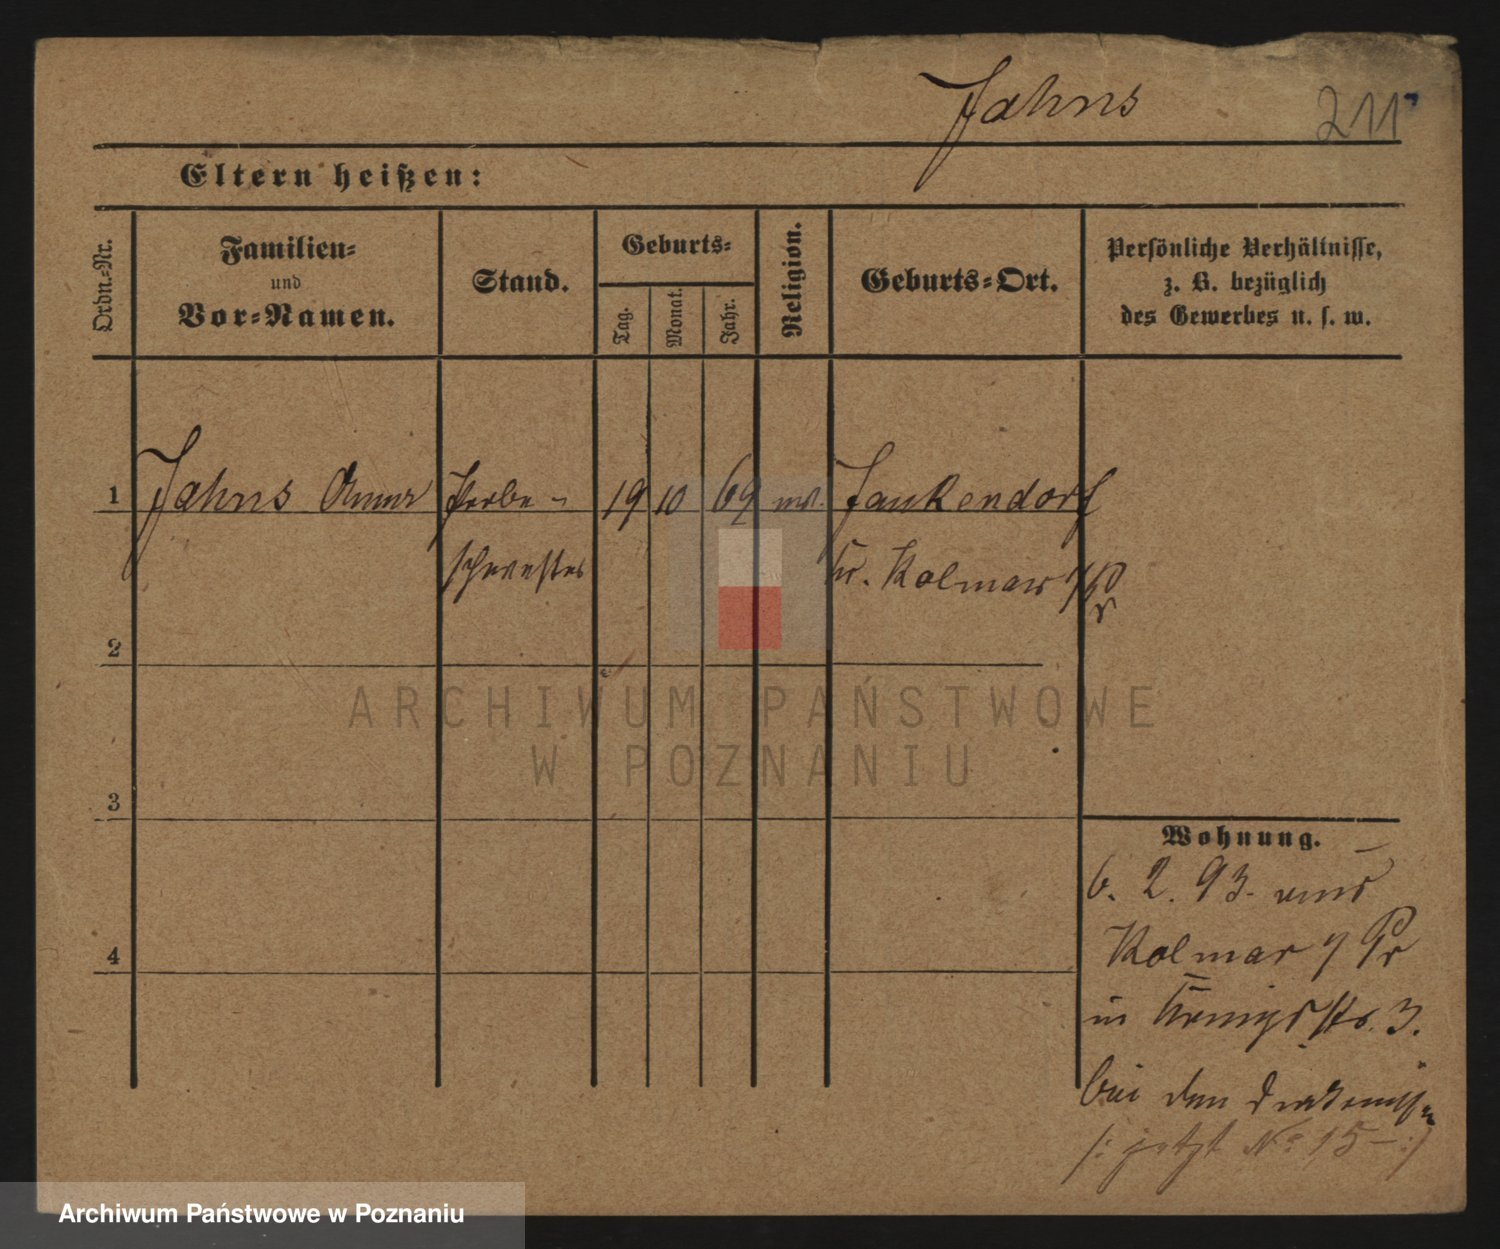 Jahns 211
Eltern heißen:
Ordn.=Nr.
Familien=
und
Vor=Namen.
Stand.
Geburts=
Tag.
Monat.
Jahr.
Religion.
Geburts=Ort.
Persönliche Verhältnisse,
z. B. bezüglich
des Gewerbes u. s. w.
1 Jahns Anna Probe- 19 10 69 ev. Jankendorf
schwester Kr. Kolmar i/P
2
3
4
Wohnung.
6. 2. 93. aus
Kolmar i Pr
in Königsstr. 3.
bei den Diakoniss
/: jetzt No 15 - :/
ARCHIWUM PAŃSTWOWE
W POZNANIU
Archiwum Państwowe w Poznaniu